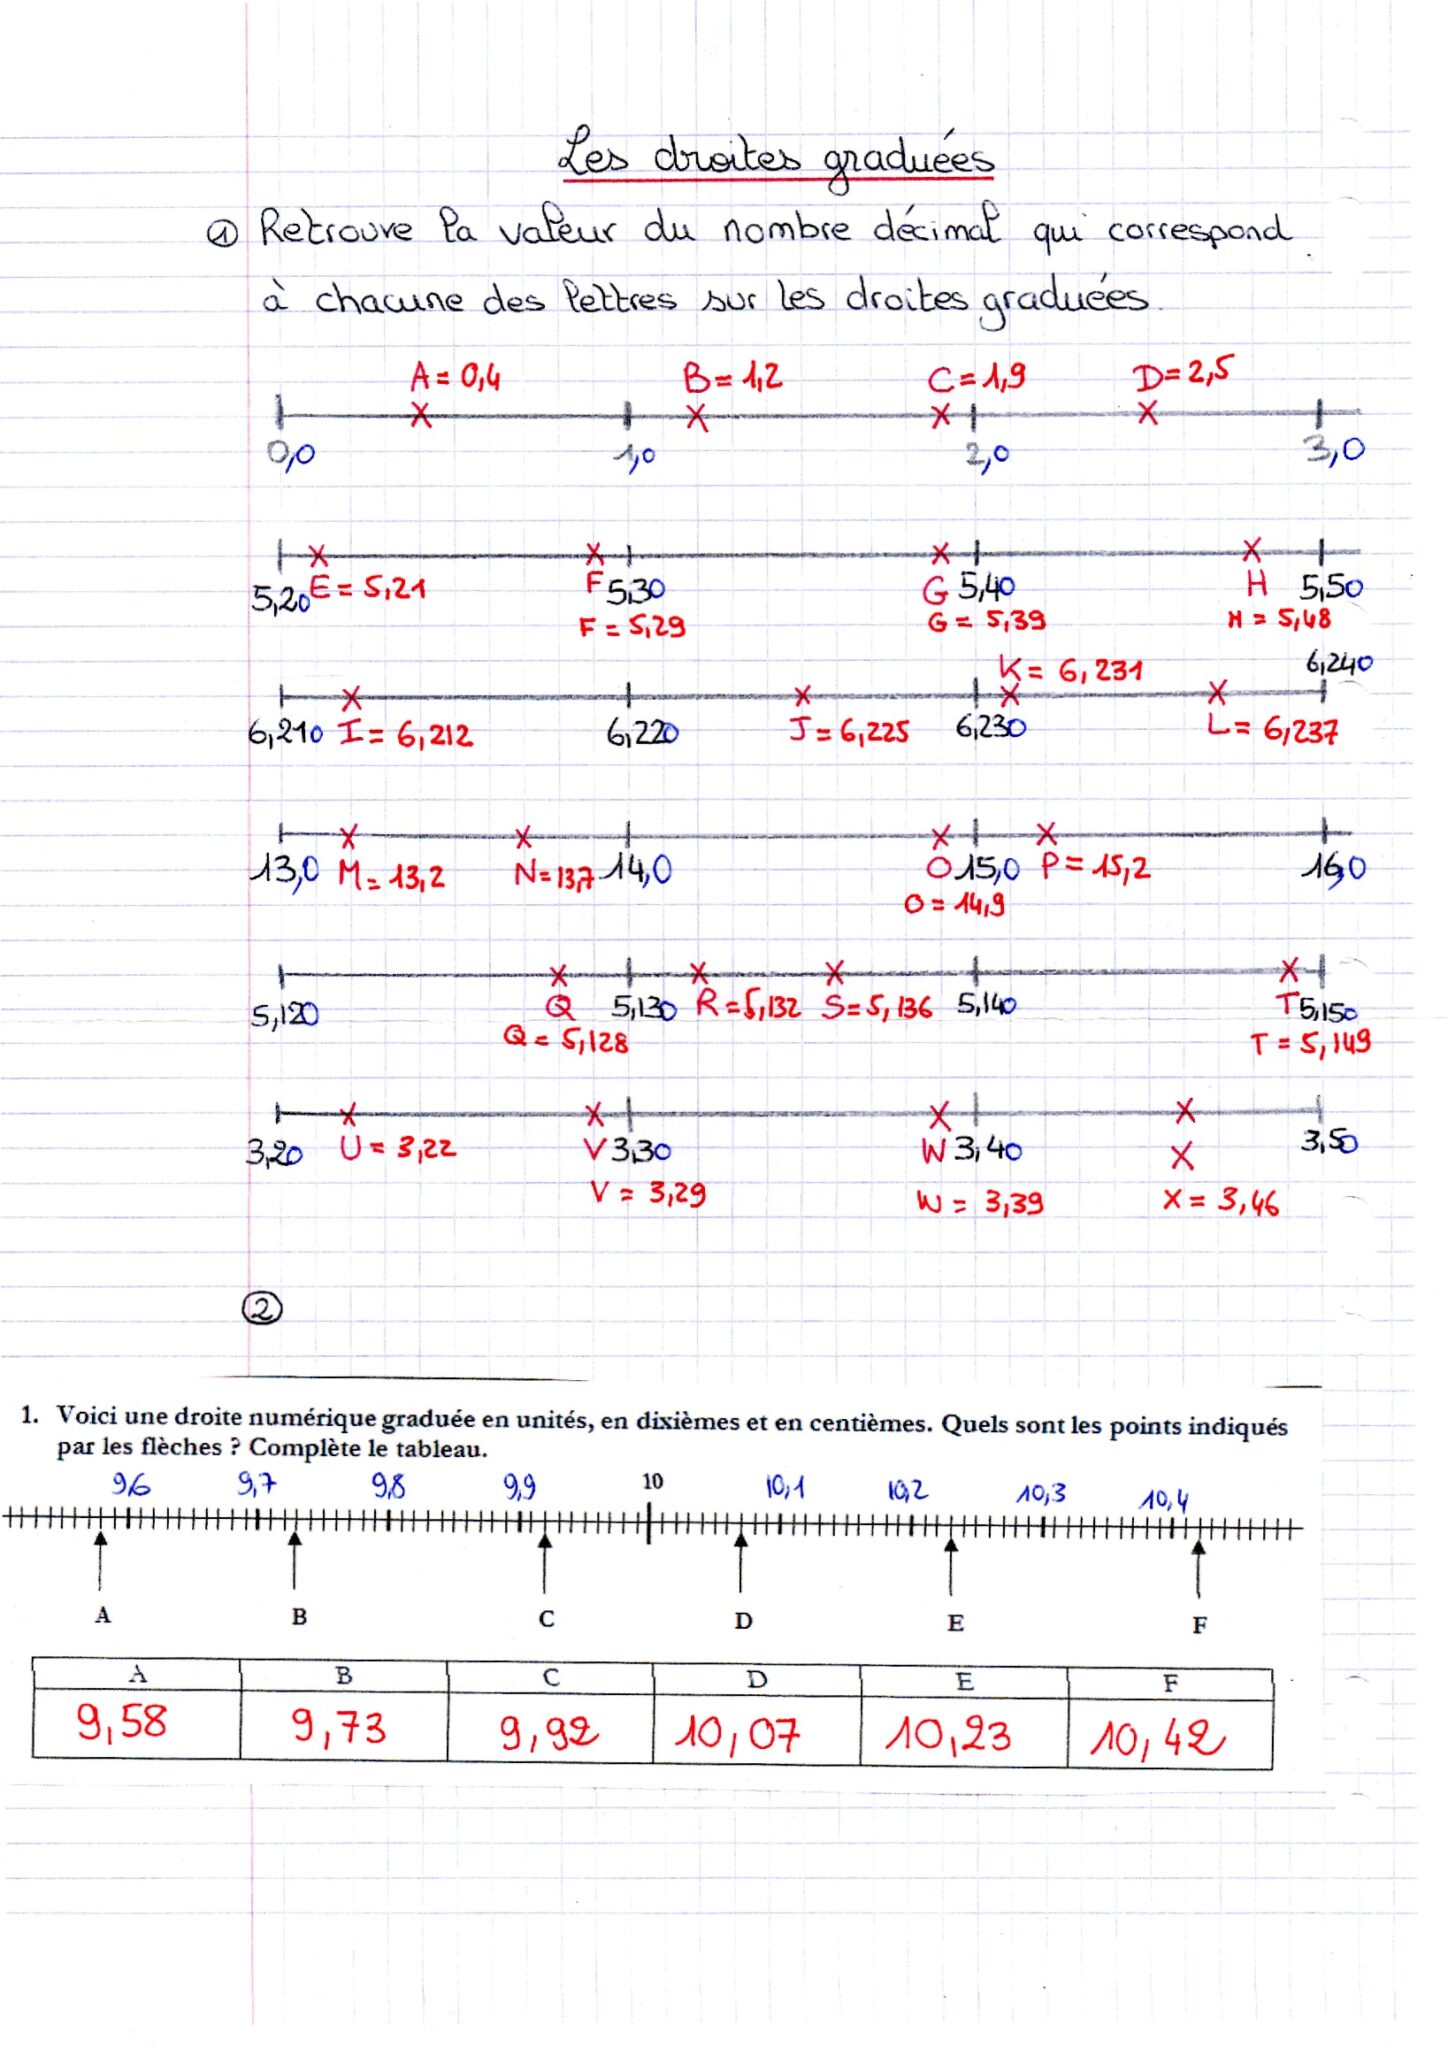 Les droites graduées
① Retrouve la valeur du nombre décimal qui correspond
à chacune des lettres sur les droites graduées.
A = 0,4 B = 1,2 C = 1,9 D = 2,5
0,0 1,0 2,0 3,0
5,20 E = 5,21 F 5,30 G 5,40 H 5,50
F = 5,29 G = 5,39 H = 5,48
K = 6,231 6,240
6,210 I = 6,212 6,220 J = 6,225 6,230 L = 6,237
13,0 M = 13,2 N = 13,7 14,0 O 15,0 P = 15,2 16,0
O = 14,9
5,120 Q 5,130 R = 5,132 S = 5,136 5,140 T 5,150
Q = 5,128 T = 5,149
3,20 U = 3,22 V 3,30 W 3,40 X 3,50
V = 3,29 W = 3,39 X = 3,46
②
1. Voici une droite numérique graduée en unités, en dixièmes et en centièmes. Quels sont les points indiqués
par les flèches ? Complète le tableau.
9,6 9,7 9,8 9,9 10 10,1 10,2 10,3 10,4
A B C D E F
A B C D E F
9,58 9,73 9,92 10,07 10,23 10,42